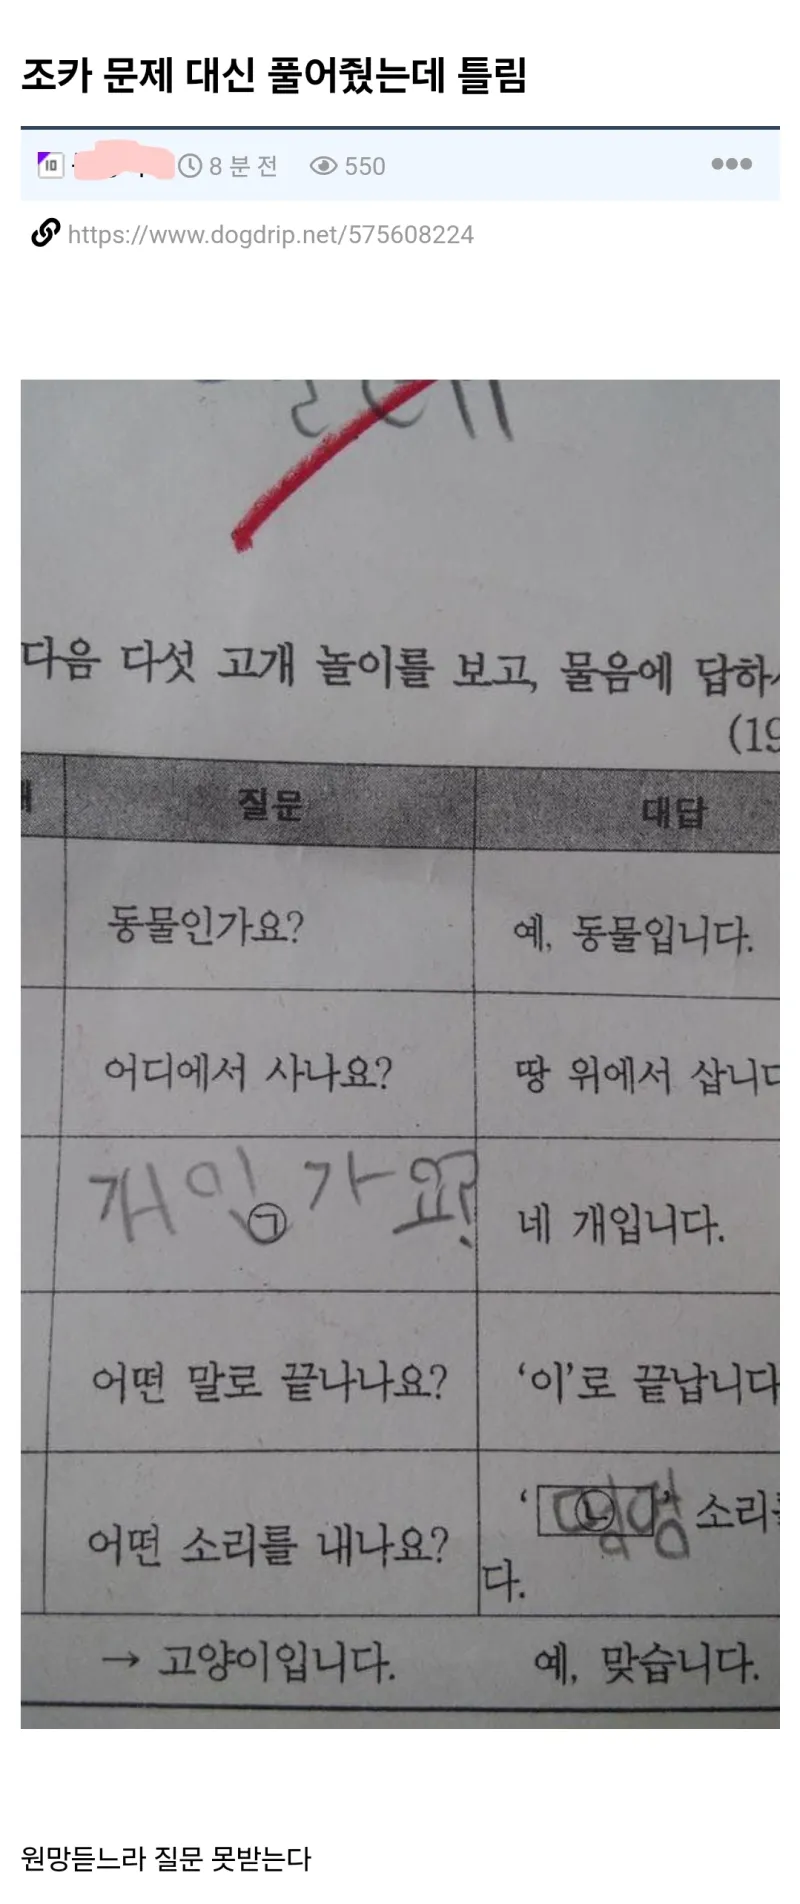 조카 문제 대신 풀어줬는데 틀림
10 8 분 전 550
https://www.dogdrip.net/575608224
다음 다섯 고개 놀이를 보고, 물음에 답하
(19
질문 대답
동물인가요? 예, 동물입니다.
어디에서 사나요? 땅 위에서 삽니다
개인가요? ㉠ 네 개입니다.
어떤 말로 끝나나요? ‘이’로 끝납니다
어떤 소리를 내나요? ‘ ㉡ ’ 소리를
다.
→ 고양이입니다. 예, 맞습니다.
원망듣느라 질문 못받는다